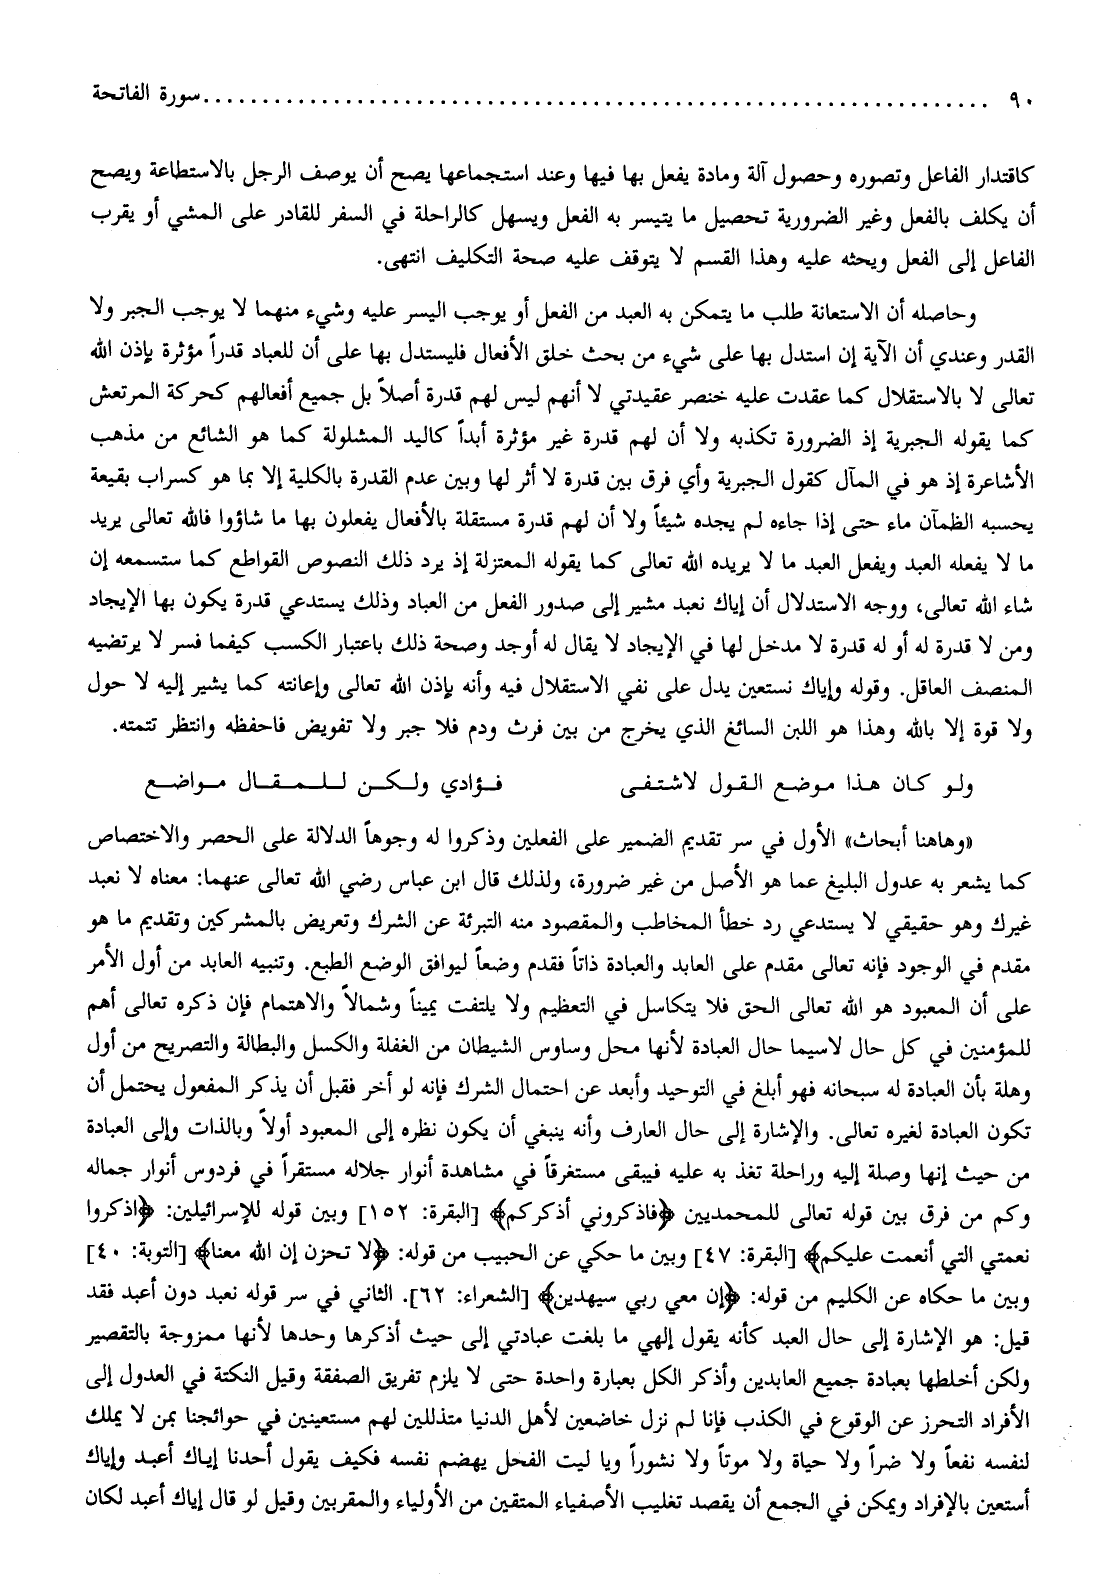 ٩٠ ................................................................ سورة الفاتحة
كاقتدار الفاعل وتصوره وحصول آلة ومادة يفعل بها فيها وعند استجماعها يصح أن يوصف الرجل بالاستطاعة ويصح
أن يكلف بالفعل وغير الضرورية تحصيل ما يتيسر به الفعل ويسهل كالراحلة في السفر للقادر على المشي أو يقرب
الفاعل إلى الفعل ويحثه عليه وهذا القسم لا يتوقف عليه صحة التكليف انتهى.
وحاصله أن الاستعانة طلب ما يتمكن به العبد من الفعل أو يوجب اليسر عليه وشيء منهما لا يوجب الجبر ولا
القدر وعندي أن الآية إن استدل بها على شيء من بحث خلق الأفعال فليستدل بها على أن للعباد قدراً مؤثرة بإذن الله
تعالى لا بالاستقلال كما عقدت عليه خنصر عقيدتي لا أنهم ليس لهم قدرة أصلاً بل جميع أفعالهم كحركة المرتعش
كما يقوله الجبرية إذ الضرورة تكذبه ولا أن لهم قدرة غير مؤثرة أبداً كاليد المشلولة كما هو الشائع من مذهب
الأشاعرة إذ هو في المآل كقول الجبرية وأي فرق بين قدرة لا أثر لها وبين عدم القدرة بالكلية إلا بما هو كسراب بقيعة
يحسبه الظمآن ماء حتى إذا جاءه لم يجده شيئاً ولا أن لهم قدرة مستقلة بالأفعال يفعلون بها ما شاؤوا فالله تعالى يريد
ما لا يفعله العبد ويفعل العبد ما لا يريده الله تعالى كما يقوله المعتزلة إذ يرد ذلك النصوص القواطع كما ستسمعه إن
شاء الله تعالى، ووجه الاستدلال أن إياك نعبد مشير إلى صدور الفعل من العباد وذلك يستدعي قدرة يكون بها الإيجاد
ومن لا قدرة له أو له قدرة لا مدخل لها في الإيجاد لا يقال له أوجد وصحة ذلك باعتبار الكسب كيفما فسر لا يرتضيه
المنصف العاقل. وقوله وإياك نستعين يدل على نفي الاستقلال فيه وأنه بإذن الله تعالى وإعانته كما يشير إليه لا حول
ولا قوة إلا بالله وهذا هو اللبن السائغ الذي يخرج من بين فرث ودم فلا جبر ولا تفويض فاحفظه وانتظر تتمته.
ولو كان هذا موضع القول لاشتفى فؤادي ولكن للمقال مواضع
«وهاهنا أبحاث» الأول في سر تقديم الضمير على الفعلين وذكروا له وجوهاً الدلالة على الحصر والاختصاص
كما يشعر به عدول البليغ عما هو الأصل من غير ضرورة، ولذلك قال ابن عباس رضي الله تعالى عنهما: معناه لا نعبد
غيرك وهو حقيقي لا يستدعي رد خطأ المخاطب والمقصود منه التبرئة عن الشرك وتعريض بالمشركين وتقديم ما هو
مقدم في الوجود فإنه تعالى مقدم على العابد والعبادة ذاتاً فقدم وضعاً ليوافق الوضع الطبع. وتنبيه العابد من أول الأمر
على أن المعبود هو الله تعالى الحق فلا يتكاسل في التعظيم ولا يلتفت يميناً وشمالاً والاهتمام فإن ذكره تعالى أهم
للمؤمنين في كل حال لاسيما حال العبادة لأنها محل وساوس الشيطان من الغفلة والكسل والبطالة والتصريح من أول
وهلة بأن العبادة له سبحانه فهو أبلغ في التوحيد وأبعد عن احتمال الشرك فإنه لو أخر فقبل أن يذكر المفعول يحتمل أن
تكون العبادة لغيره تعالى. والإشارة إلى حال العارف وأنه ينبغي أن يكون نظره إلى المعبود أولاً وبالذات وإلى العبادة
من حيث إنها وصلة إليه وراحلة تغذ به عليه فيبقى مستغرقاً في مشاهدة أنوار جلاله مستقراً في فردوس أنوار جماله
وكم من فرق بين قوله تعالى للمحمديين ﴿فاذكروني أذكركم﴾ [البقرة: ١٥٢] وبين قوله للإسرائيلين: ﴿اذكروا
نعمتي التي أنعمت عليكم﴾ [البقرة: ٤٧] وبين ما حكي عن الحبيب من قوله: ﴿لا تحزن إن الله معنا﴾ [التوبة: ٤٠]
وبين ما حكاه عن الكليم من قوله: ﴿إن معي ربي سيهدين﴾ [الشعراء: ٦٢]. الثاني في سر قوله نعبد دون أعبد فقد
قيل: هو الإشارة إلى حال العبد كأنه يقول إلهي ما بلغت عبادتي إلى حيث أذكرها وحدها لأنها ممزوجة بالتقصير
ولكن أخلطها بعبادة جميع العابدين وأذكر الكل بعبارة واحدة حتى لا يلزم تفريق الصفقة وقيل النكتة في العدول إلى
الأفراد التحرز عن الوقوع في الكذب فإنا لم نزل خاضعين لأهل الدنيا متذللين لهم مستعينين في حوائجنا بمن لا يملك
لنفسه نفعاً ولا ضراً ولا حياة ولا موتاً ولا نشوراً ويا ليت الفحل يهضم نفسه فكيف يقول أحدنا إياك أعبد وإياك
أستعين بالإفراد ويمكن في الجمع أن يقصد تغليب الأصفياء المتقين من الأولياء والمقربين وقيل لو قال إياك أعبد لكان